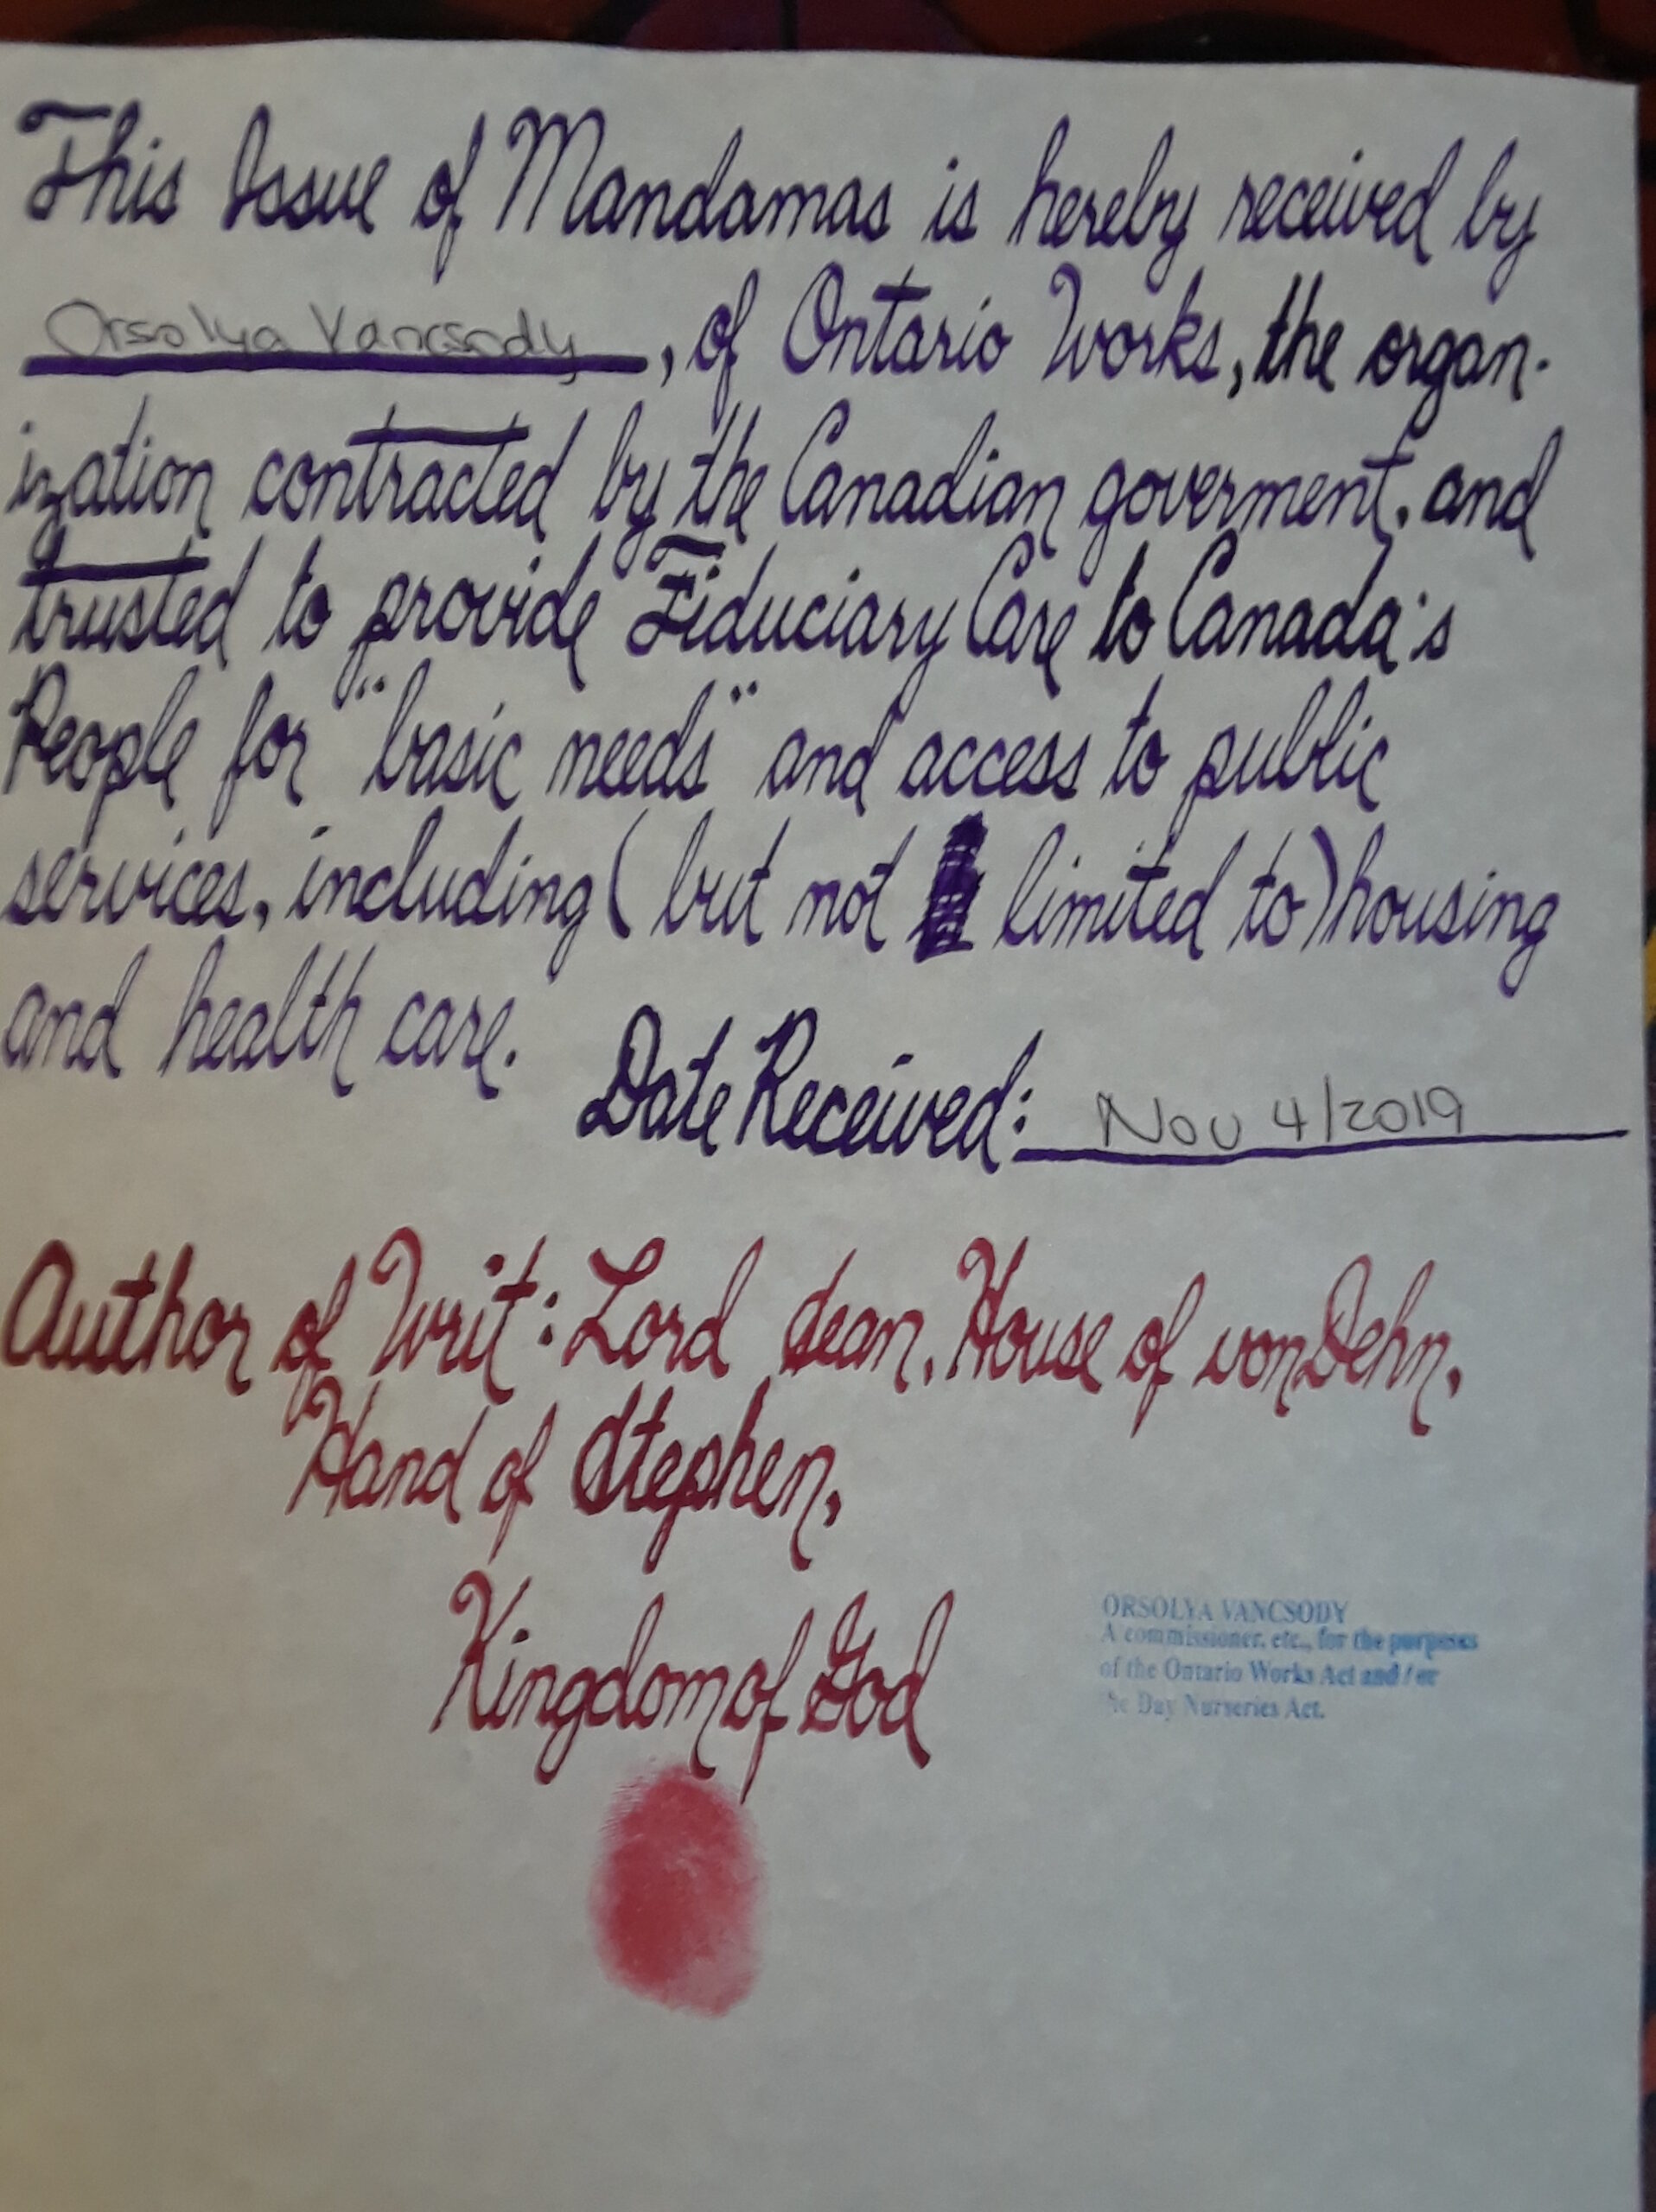 This Issue of Mandamas is hereby received by
Orsolya Vancsody, of Ontario Works, the organ-
ization contracted by the Canadian goverment, and
trusted to provide Fiduciary Care to Canada's
People for "basic needs" and access to public
services, including (but not limited to) housing
and health care.
Date Received: Nov 4/2019
Author of Writ: Lord dean, House of vonDehn,
Hand of Stephen,
Kingdom of God
ORSOLYA VANCSODY
A commissioner, etc., for the purposes
of the Ontario Works Act and / or
the Day Nurseries Act.